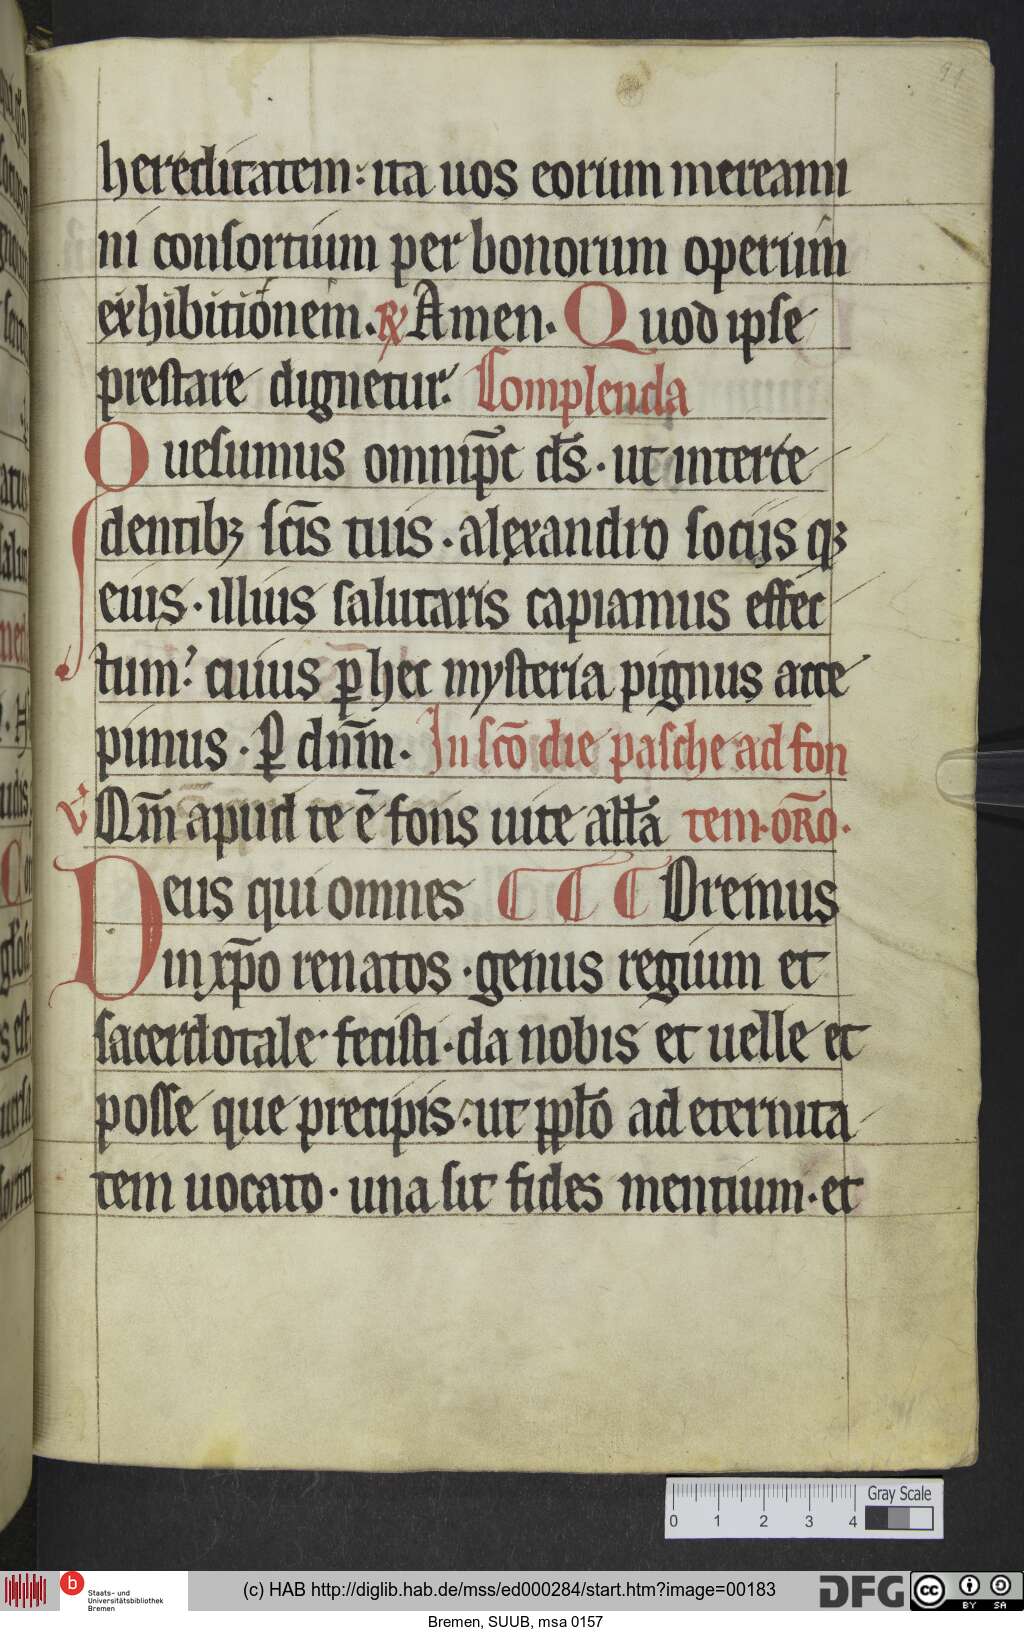 91
hereditatem: ita uos eorum mereami
ni consortium per bonorum operum
exhibitionem. R̷ Amen. Quod ipse
prestare dignetur. Complenda
Quesumus omnip̅c ds̅. ut interce
dentibꝫ sc̅is tuis. alęxandro socijs qꝫ
eius. illius salutaris capiamus effec
tum? cuius ꝑ hec mysteria pignus acce
pimus. P̲ dn̅m. In sc̅o die pasche ad fon
V̷ Qm̅ apud te ē fons uite all̅a tem. or̅o.
Deus qui omnes Oremus
in xp̅o renatos. genus regium et
sacerdotale fecisti. da nobis et uelle et
posse que precipis. ut ppl̅o ad eternita
tem uocato. una sit fides mentium. et
Gray Scale
0 1 2 3 4
b Staats- und
Universitätsbibliothek
Bremen
(c) HAB http://diglib.hab.de/mss/ed000284/start.htm?image=00183
DFG
cc BY SA
Bremen, SUUB, msa 0157